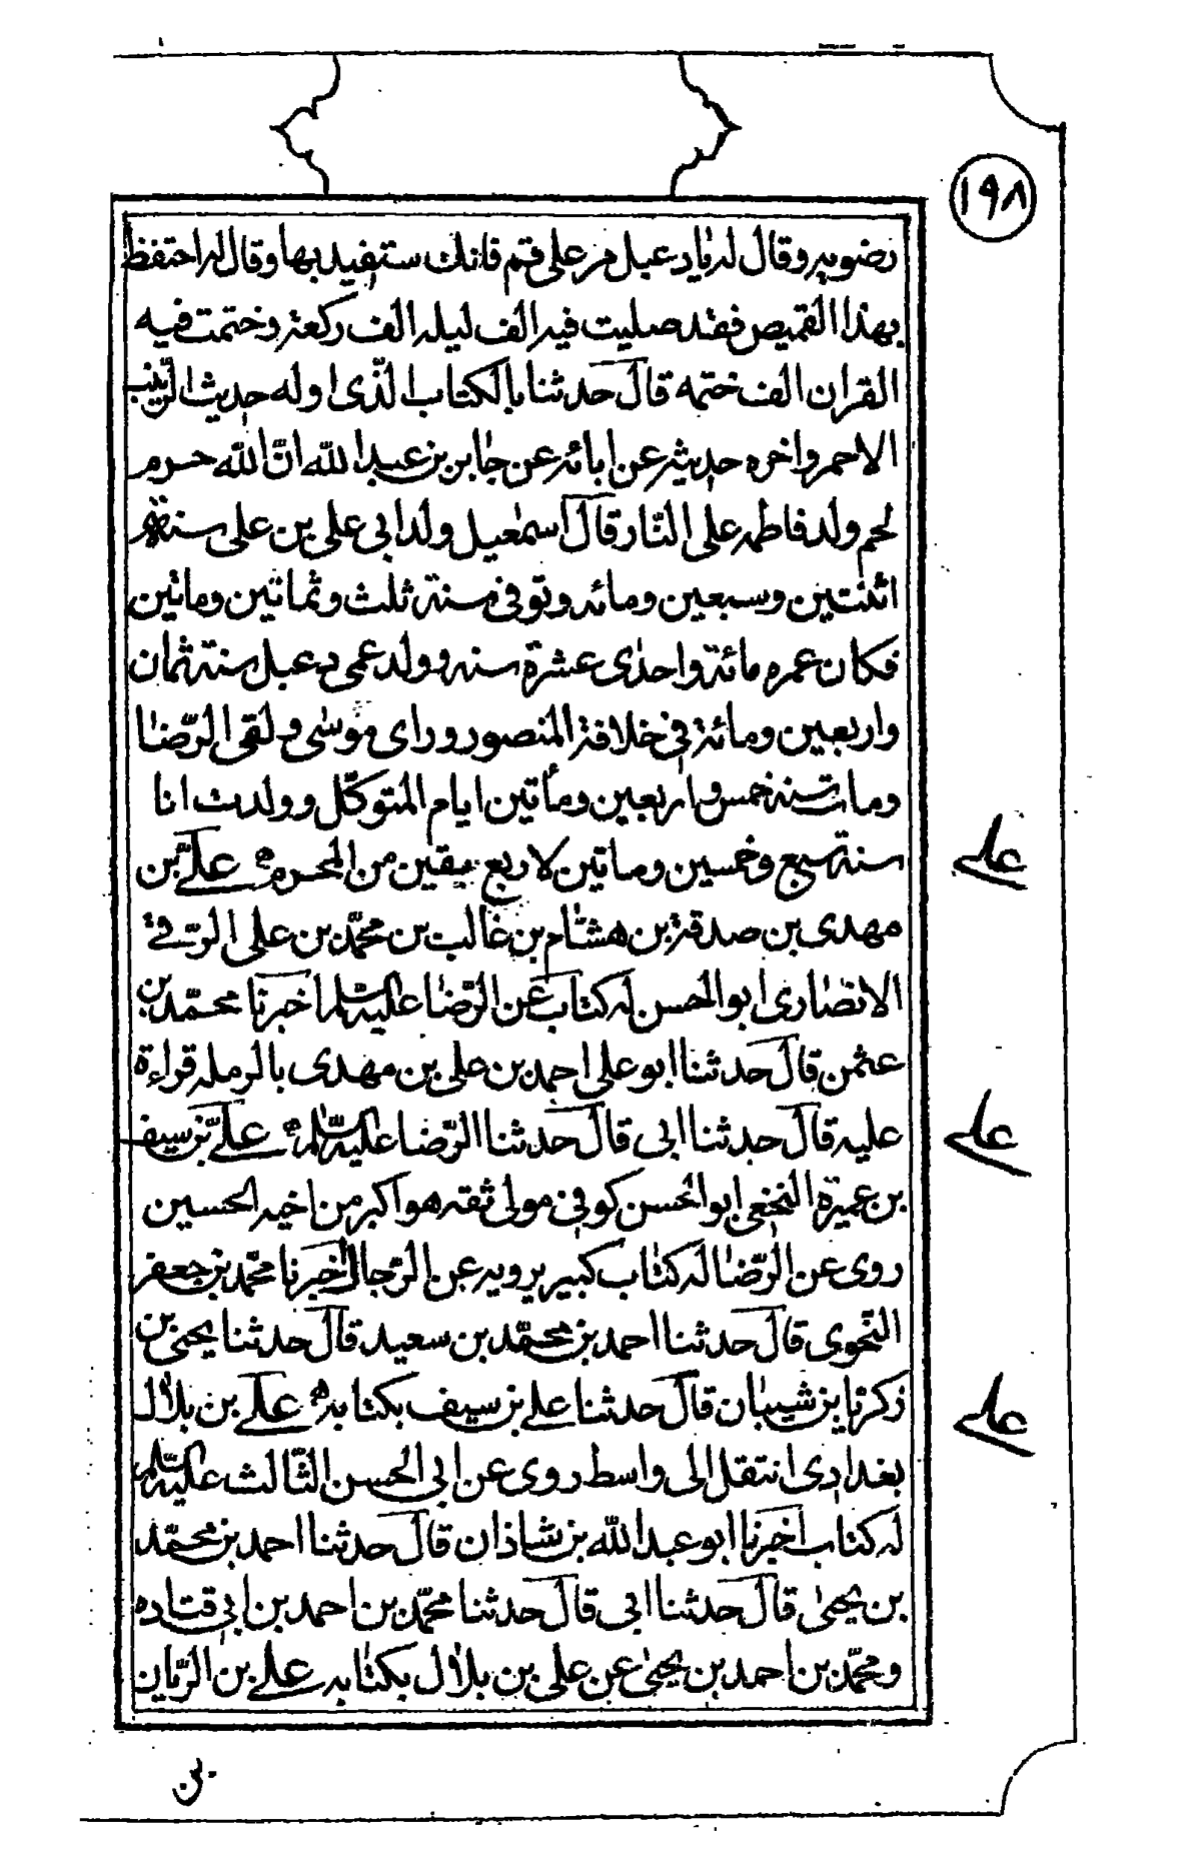 ١٩٨
رضويه وقال له يا دعبل مر على قم فانك ستفيد بها وقال له احتفظ
بهذا القميص فقد صليت فيه الف ليله الف ركعة وختمت فيه
القران الف ختمه قال حدثنا بالكتاب الذّى اوله حديث الزّبيب
الاحمر واخره حديثه عن ابائه عن جابر بن عبد الله انّ الله حرم
لحم ولد فاطمه على النّار قال اسمعيل ولد ابي على بن على سنة
اثنتين وسبعين ومائه وتوفى سنة ثلث وثمانين وماتين
فكان عمره مائة واحدى عشرة سنه وولد عمى دعبل سنة ثمان
واربعين ومائة فى خلافة المنصور وراى موسى ولقى الرّضا
ومات سنة خمس واربعين ومأتين ايام المتوكّل وولدت انا
سنة سبع وخمسين وماتين لاربع بقين من المحرم علىّ بن
على
مهدى بن صدقة بن هشام بن غالب بن محمّد بن على الرّقى
الانصارى ابو الحسن له كتاب عن الرّضا عليه السّلم اخبرنا محمّد بن
عثمن قال حدثنا ابو على احمد بن على بن مهدى بالرمله قراءة
عليه قال حدثنا ابى قال حدثنا الرّضا عليه السّلم علىّ بن سيف
على
بن عميرة النخعى ابو الحسن كوفى مولى ثقه هو اكبر من اخيه الحسين
روى عن الرّضا له كتاب كبير يرويه عن الرّجال اخبرنا محمّد بن جعفر
النّحوى قال حدثنا احمد بن محمّد بن سعيد قال حدثنا يحيى بن
زكريا بن شيبان قال حدثنا على بن سيف بكتابه على بن بلال
على
بغدادى انتقل الى واسط روى عن ابى الحسن الثّالث عليه السّلم
له كتاب اخبرنا ابو عبد الله بن شاذان قال حدثنا احمد بن محمّد
بن يحيى قال حدثنا ابى قال حدثنا محمّد بن احمد بن ابى قتاده
ومحمّد بن احمد بن يحيى عن على بن بلال بكتابه على بن الرّيان
بن